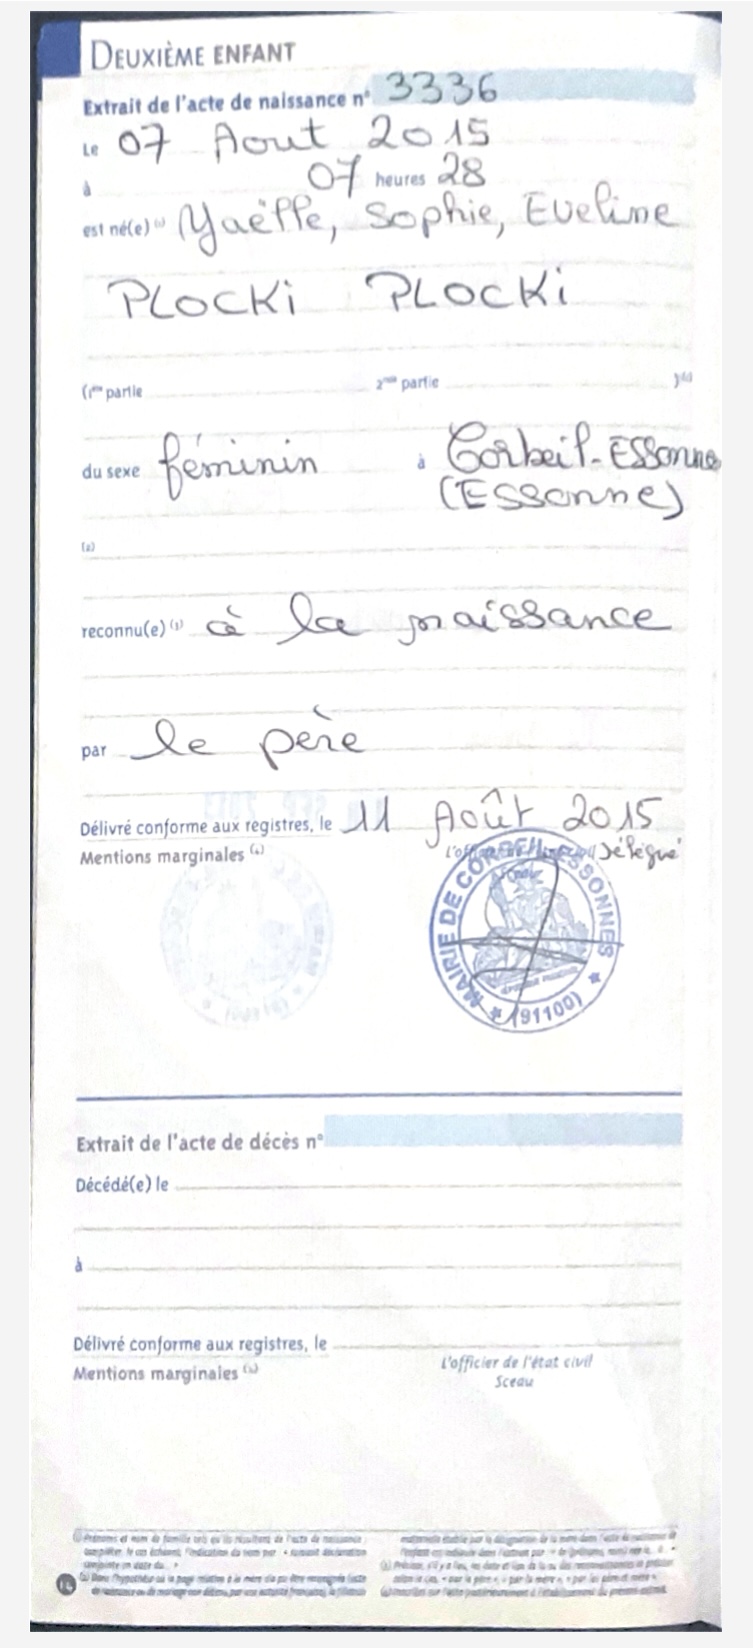 DEUXIÈME ENFANT
Extrait de l'acte de naissance n° 3336
Le 07 Aout 2015
à 07 heures 28
est né(e) (1) Yaëlle, Sophie, Eveline
PLOCKi PLOCKi
(1ère partie 2nde partie )(2)
du sexe féminin à Corbeil-Essonne
(Essonne)
(2)
reconnu(e) (3) à la naissance
par le père
Délivré conforme aux registres, le 11 Août 2015
Mentions marginales (4) Délégué
MAIRIE DE CORBEIL-ESSONNES
(91100)
Extrait de l'acte de décès n°
Décédé(e) le
à
Délivré conforme aux registres, le
Mentions marginales (4) L'officier de l'état civil
Sceau
(1) Prénoms et nom de famille tels qu'ils résultent de l'acte de naissance
14